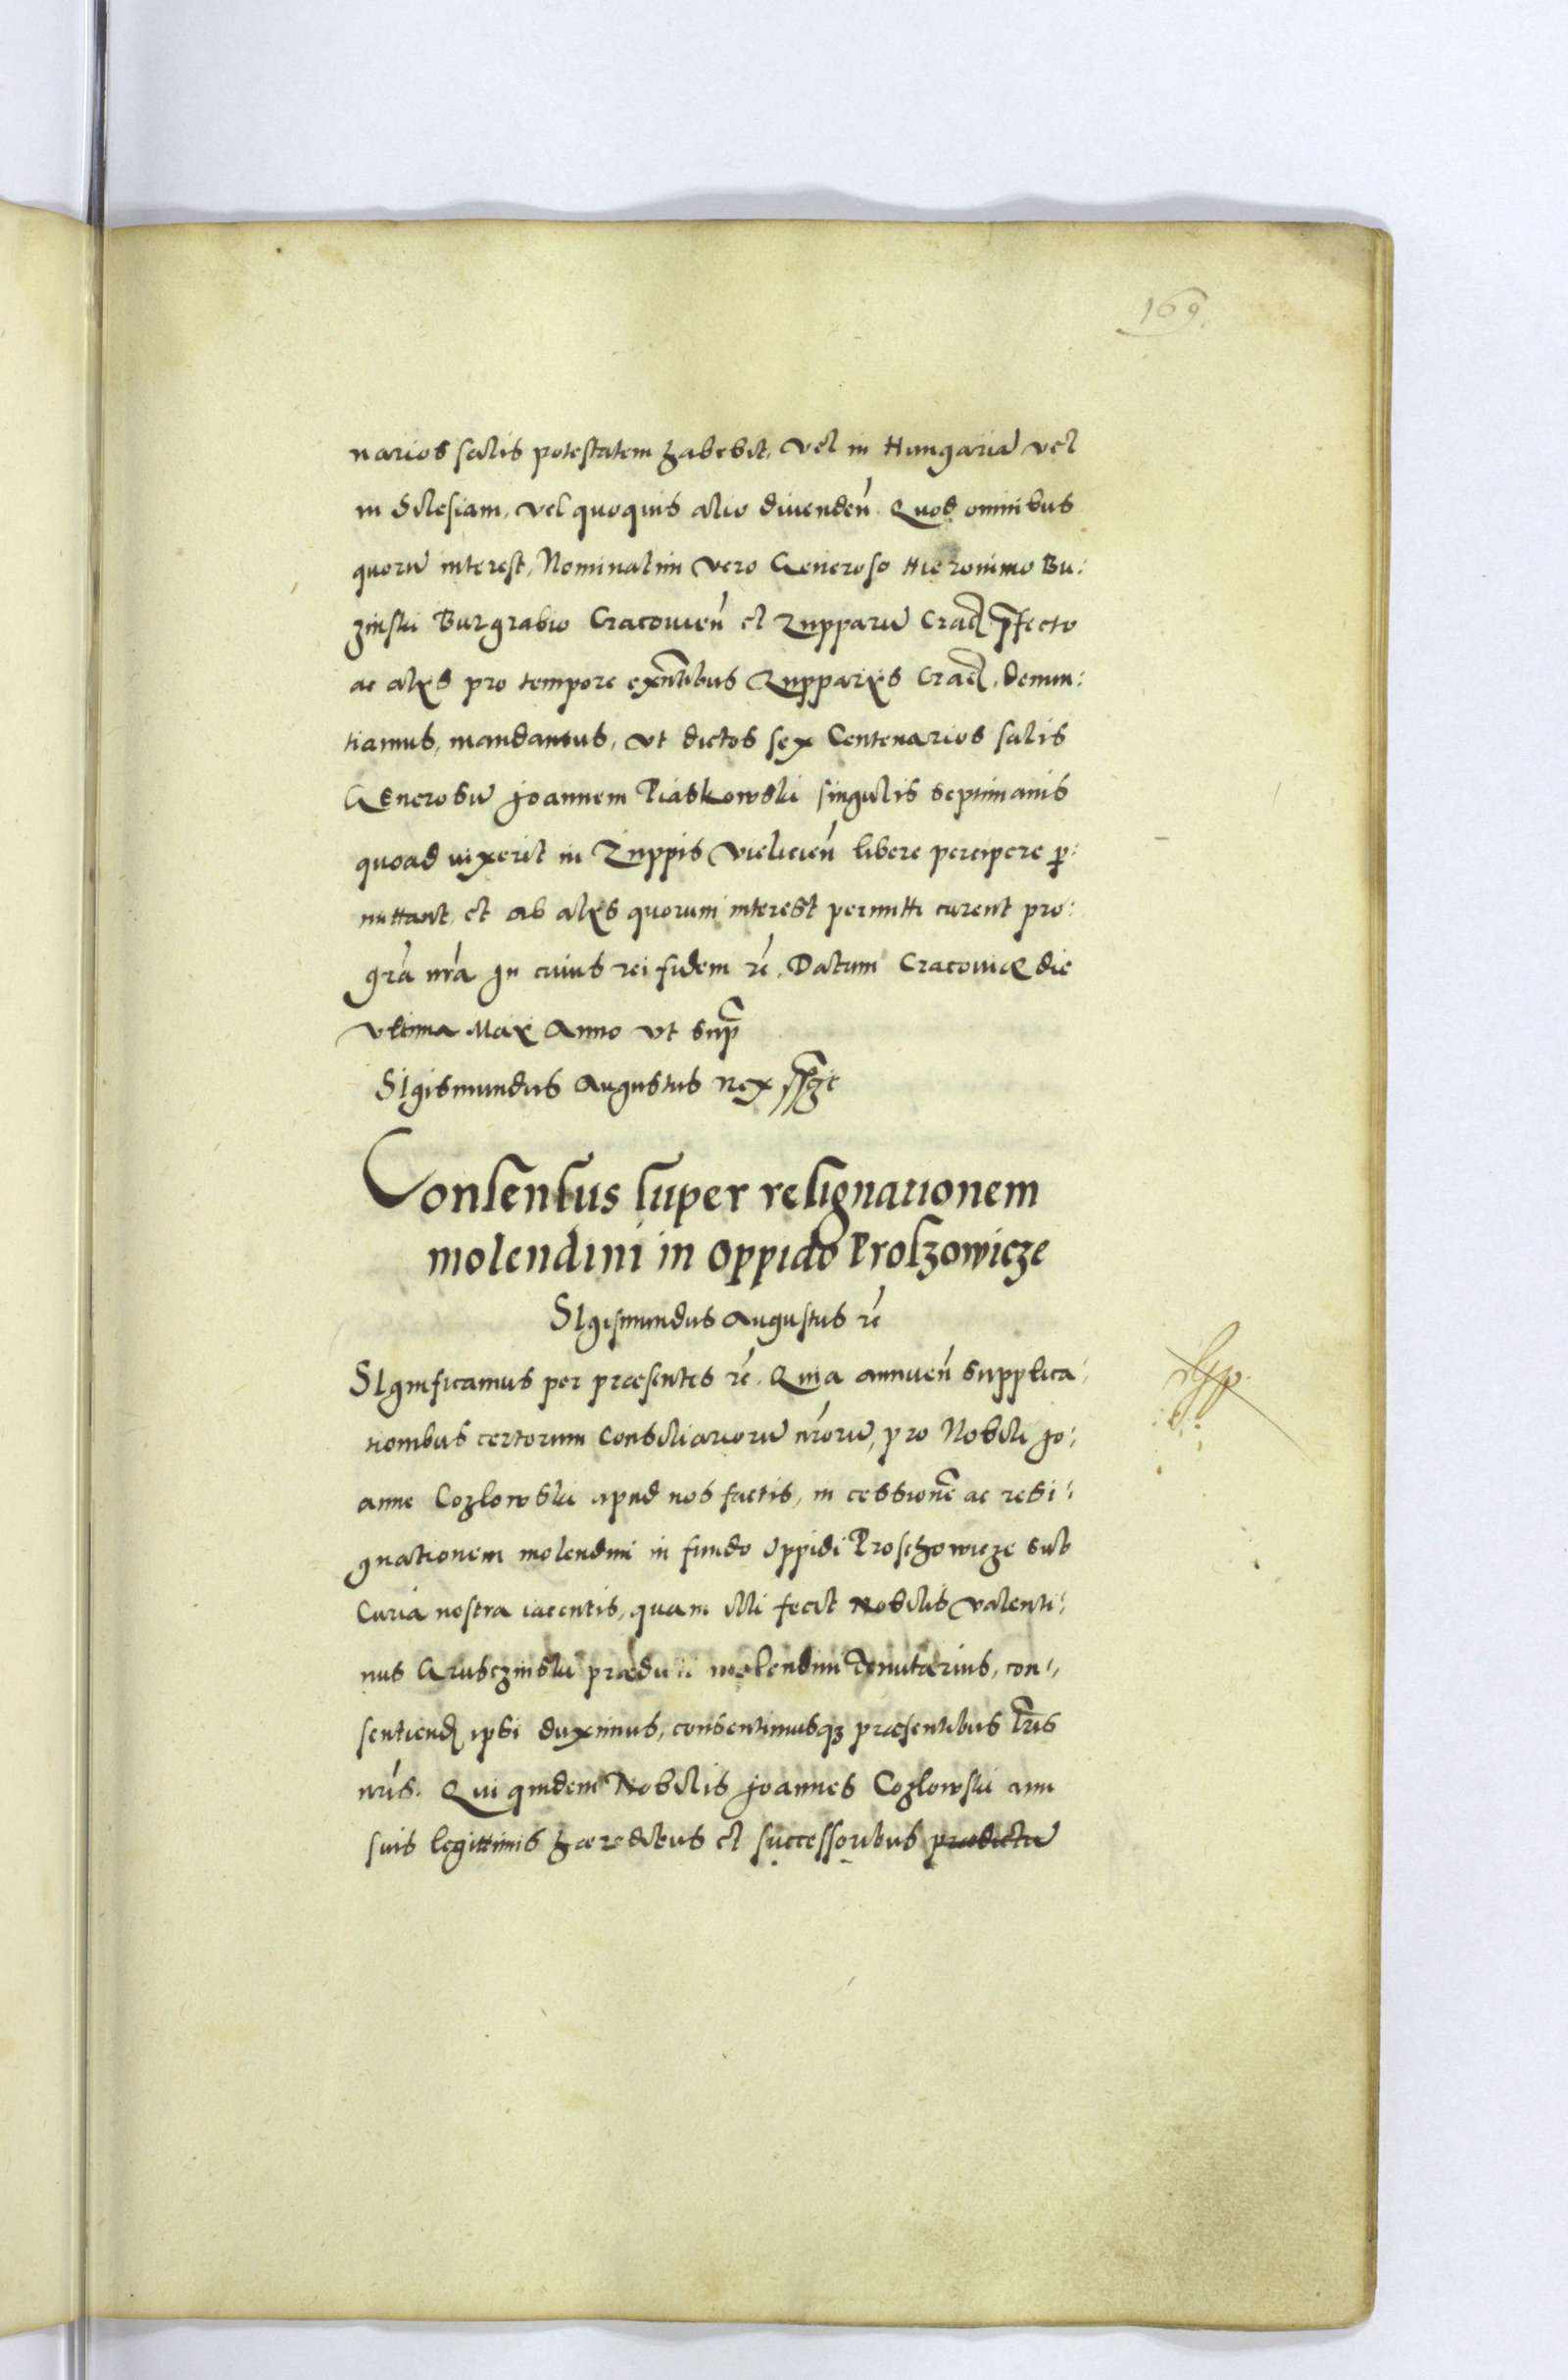 169.
narios salis potestatem habebit, vel in Hungariā vel
in Silesiam, vel quoquis alio divendeñ. Quod omnibus
quorū interest, Nominatim vero Generoso Hieronimo Bu:
zinski Burgrabio Cracovieñ et Zupparū Crac̃ p̃fecto
ac alijs pro tempore exñtibus Zupparijs Crac̃, denun:
tiamus, mandamus, ut dictos sex Centenarios salis
Generosū Joannem Piaskowski singulis septimanis
quoad vixerit in Zuppis Vielicieñ libere percipere p̱:
mittant, et ab alijs quorum interest permitti curent pro:
gr̃a nr̃a In cuius rei fidem rc̃. Datum Cracoviæ die
Ultima Maij Anno ut sup̃
Sigismundus Augustus Rex
Consensus super resignationem
molendini in oppido Proszowicze
Sigismundus Augustus rc̃
Significamus per præsentes rc̃. Quia annueñ supplica:
tionibus certorum Consiliariorū nr̃orū, pro Nobili Jo:
anne Cozlowski apud nos factis, in cessionē ac resi:
gnationem molendini in fundo Oppidi Proschowicze sub
Curia nostra iacentis, quam illi fecit Nobilis Valenti:
nus Grusczinski prædicti molendini Tenutarius, con:
sentiend̃ ipsi duximus, consentimusq3 præsentibus lr̃is
nr̃is. Qui quidem Nobilis Joannes Cozlowski cum
suis legittimis hæredibus et successoribus prædictū